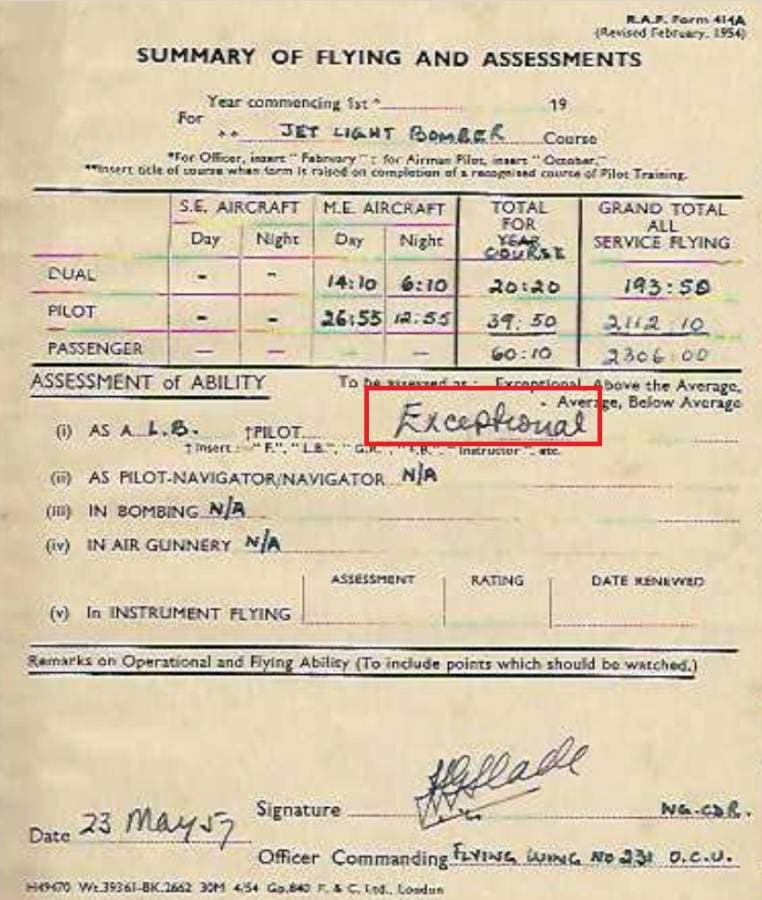 R.A.F. Form 414A
(Revised February, 1954)
SUMMARY OF FLYING AND ASSESSMENTS
Year commencing 1st * 19
For
** JET LIGHT BOMBER Course
*For Officer, insert "February"; for Airman Pilot, insert "October."
**Insert title of course when form is raised on completion of a recognised course of Pilot Training.
S.E. AIRCRAFT M.E. AIRCRAFT TOTAL FOR YEAR COURSE GRAND TOTAL ALL SERVICE FLYING
Day Night Day Night
DUAL - - 14:10 6:10 20:20 193:50
PILOT - - 26:55 12:55 39:50 2112:10
PASSENGER — — — — 60:10 2306:00
ASSESSMENT of ABILITY To be assessed as: Exceptional, Above the Average,
Average, Below Average
(i) AS A L.B. †PILOT Exceptional
† Insert:—"F.", "L.B.", "G.R.", "F.B.", "Instructor", etc.
(ii) AS PILOT-NAVIGATOR/NAVIGATOR N/A
(iii) IN BOMBING N/A
(iv) IN AIR GUNNERY N/A
ASSESSMENT RATING DATE RENEWED
(v) In INSTRUMENT FLYING
Remarks on Operational and Flying Ability (To include points which should be watched.)
Signature
WG.CDR.
Date 23 May 57
Officer Commanding FLYING WING NO 231 O.C.U.
H49470 Wt.39361-BK.2662 30M 4/54 Gp.840 F. & C. Ltd., London